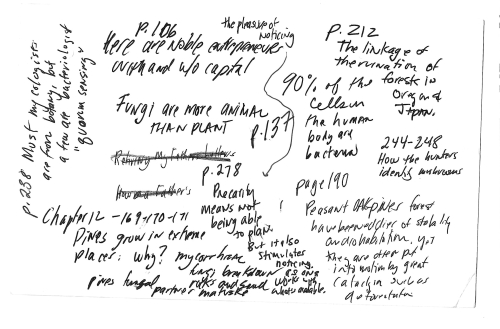 p. 106
Here are Noble entrepreneur
with and w/o capital
the pleasure of
noticing
p. 212
The linkage of
the ruination of
the forests in
Oregon &
Japan.
p. 238 Most mycologists
are from botany, but
a few are bacteriologist
"quorum sensing"
Fungi are more ANIMAL
THAN PLANT
p. 137
90% of the
cells in
the human
body are
bacteria
244-248
How the hunters
identify mushrooms
p. 278
Precarity
means not
being able
to plan.
But it also
stimulates
noticing,
as one
works with
what's available.
Chapter 12 - 169-170-171
Pines grow in extreme
places: why? mycorrhizae
fungi breakdown
rocks and sand
pines fungal
partner
page 190
Peasant OAK pines forest
have been
of stability
and habitation, yet
they are often put
into motion by great
cataclysm such as
deforestation